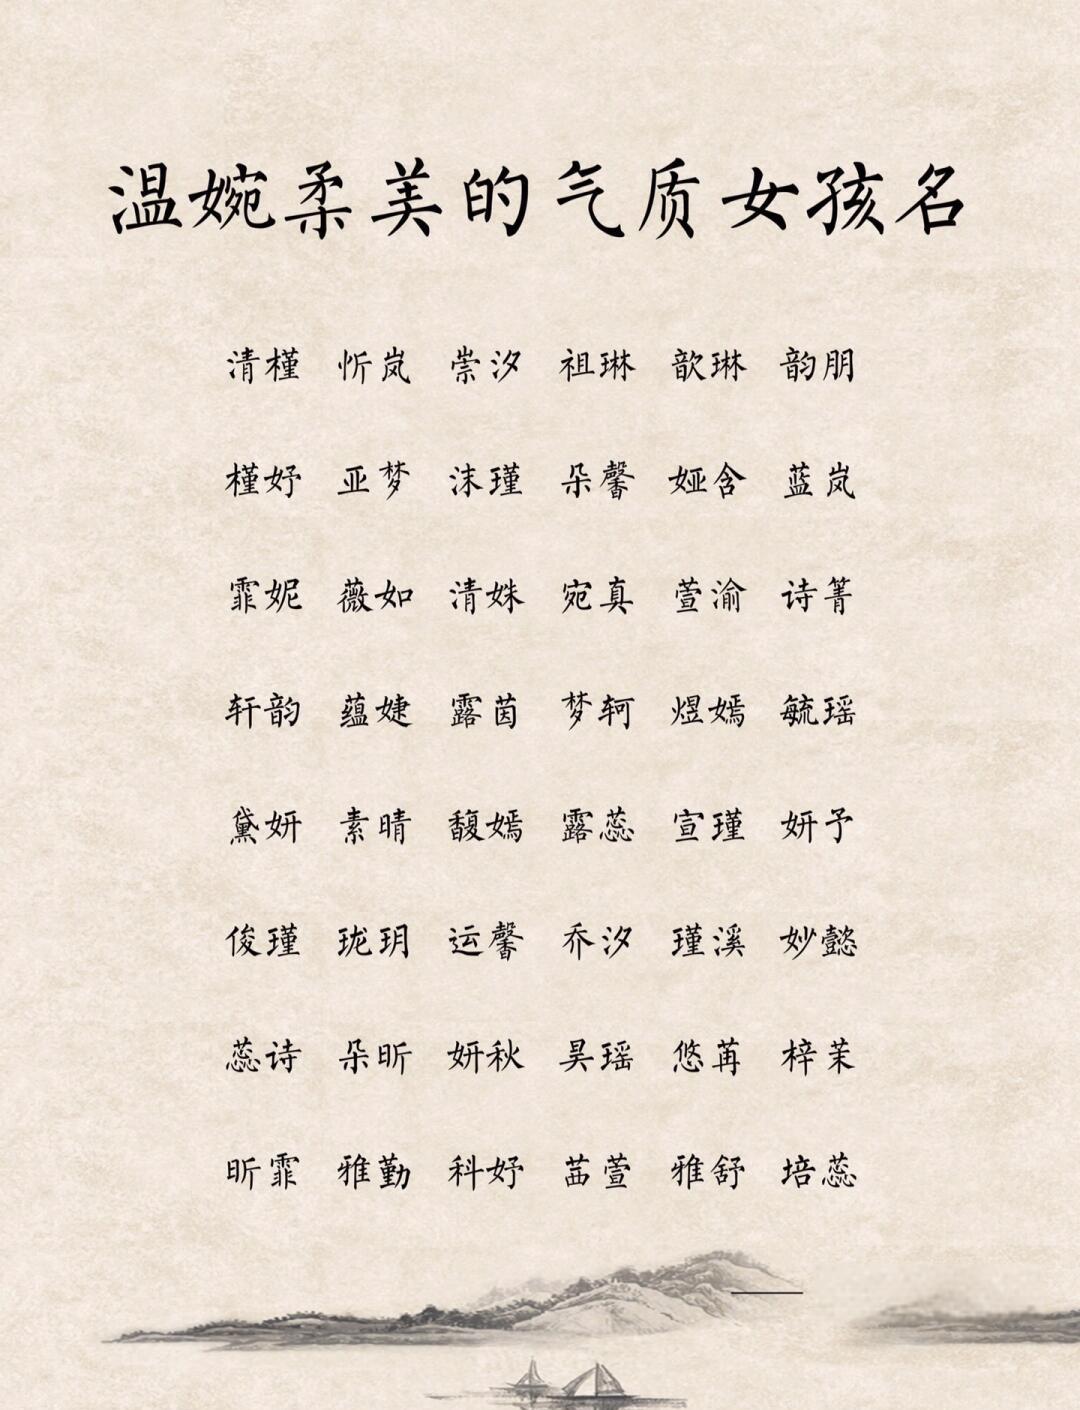 温婉柔美的气质女孩名
清槿 忻岚 崇汐 祖琳 歆琳 韵朋
槿妤 亚梦 沫瑾 朵馨 娅含 蓝岚
霏妮 薇如 清姝 宛真 萱渝 诗箐
轩韵 蕴婕 露茵 梦轲 煜嫣 毓瑶
黛妍 素晴 馥嫣 露蕊 宣瑾 妍予
俊瑾 珑玥 运馨 乔汐 瑾溪 妙懿
蕊诗 朵昕 妍秋 昊瑶 悠苒 梓茉
昕霏 雅勤 科妤 茁萱 雅舒 培蕊